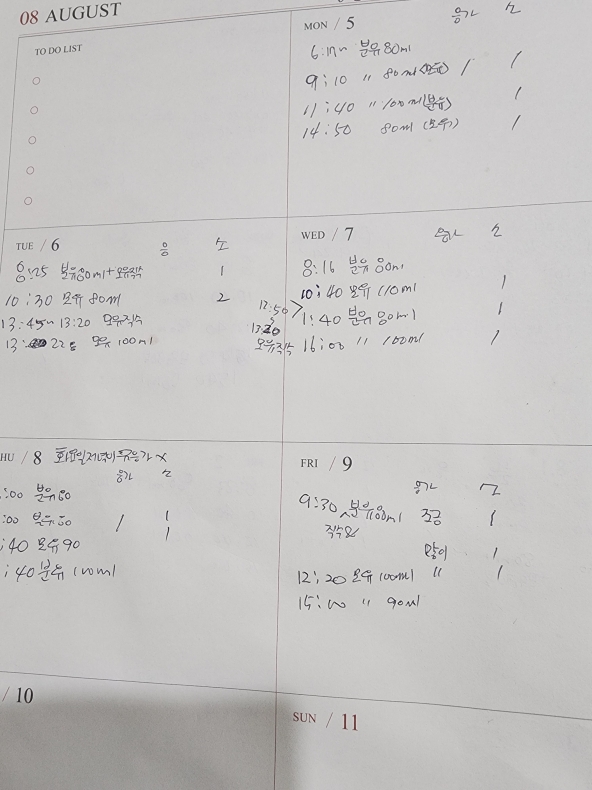 08 AUGUST
TO DO LIST
MON / 5 응가 소
분유 80ml
9:10 〃 80ml (모유) / /
11:40 〃 100ml (분유) /
14:50 80ml (모유) /
TUE / 6 응 소
8:25 분유 80ml + 모유직수 1
10:30 모유 80ml 2
13:20 모유직수
모유 100ml
WED / 7 응가 소
8:16 분유 80ml
10:40 모유 110ml /
12:50
13:20
모유직수
1:40 분유 80ml /
16:00 〃 100ml /
HU / 8 화요일저녁이후응가 X
응가 소
:00 분유 80
:00 분유 80 / /
:40 모유 90 /
:40 분유 100ml
FRI / 9
응가 소
9:30 분유 80ml 조금 /
직수
많이 /
12:20 모유 100ml 〃 /
15:00 〃 90ml
/ 10
SUN / 11